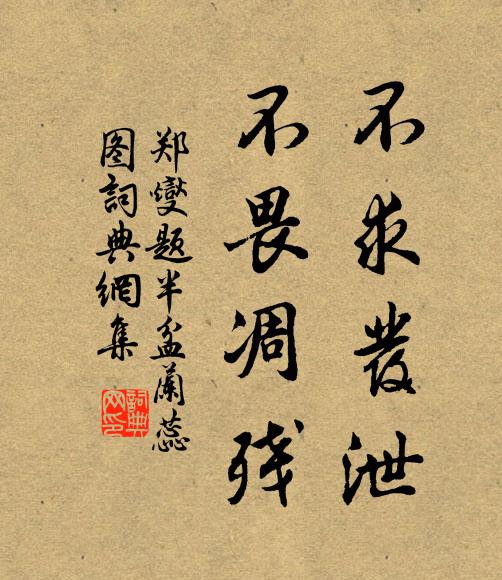 不求發泄
不畏凋残
郑燮题半盆蘭蕊
图詞典網集
詞典
网印